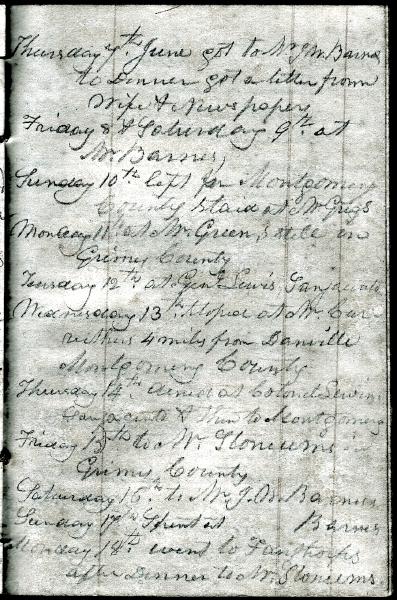 Thursday 7th June got to Mr J M. Barnes
to Dinner got a letter from
Wife & Newspapers
Friday 8 & Saturday 9th at
Mr Barnes,
Sunday 10th left for Montgomery
County Staid at Mr Grigs
Monday 11th at Mr Greens still in
Grimes County
Tuesday 12th at Genl Lewis Sanjacinto
Wednesday 13th Stoped at Mr Car
ruthers 4 miles from Danville
Montgomery County
Thursday 14th dined at Colonel Lewis
Sanjacinto & then to Montgomery
Friday 15th to Mr Sloneums in
Grimes County
Saturday 16th to Mr J. M Barnes
Sunday 17th Spent at Barnes
Monday 18th went to Fanthorps
after Dinner to Mr Sloneums